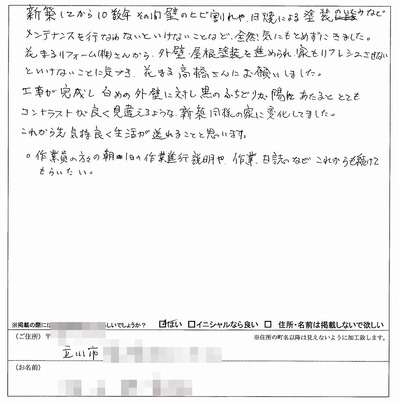 新築してから10数年その間壁のヒビ割れや、日焼による塗装など
メンテナンスを行なわないといけないことなど、全然気にもとめずにきました。
花まるリフォーム(株)さんから、外壁、屋根塗装を進められ家もリフレッシュさせない
といけないことに気づき、花まる高橋さんにお願いしました。
工事が完成し白めの外壁に対し黒のふちどりが陽にあたるととても
コントラストが良く見違えるような、新築同様の家に変化してました。
これから先気持良く生活が送れることと思います。
○作業員の方々の朝一日の作業進行説明や、作業日誌のなどこれからも続けて
もらいたい。
※掲載の際には しいでしょうか? ☑はい □イニシャルなら良い □住所・名前は掲載しないで欲しい
(ご住所) 〒 ※住所の町名以降は見えないように加工致します。
立川市
(お名前)